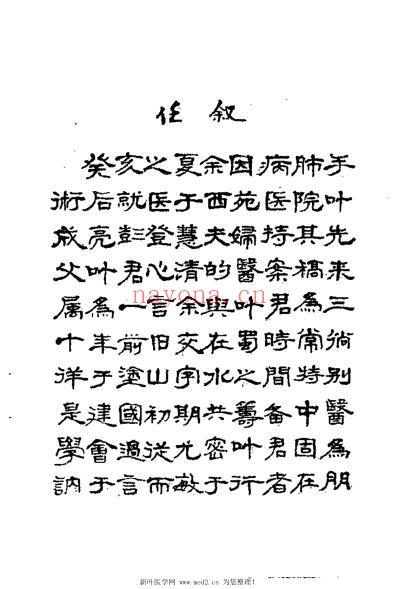 任叙
癸亥之夏余因病肺手
術后就医于西苑医院叶
成亮彭登慧夫婦持其先
父叶君心清的醫案稿来
属為一言余與叶君為三
十年前旧交在蜀時常徜
徉于塗山字水之間特别
是建國初期共籌备中醫
學會過從尤密叶君固為
訥于言而敏于行者在朋
nayona.cn
新叶医学网 www.med2.cn 为您整理!